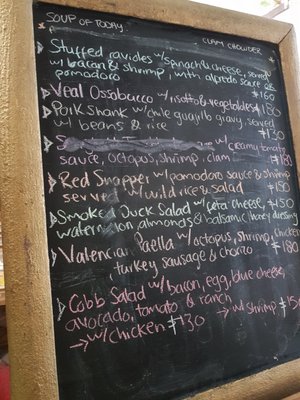 SOUP OF TODAY:
CLAM CHOWDER
Stuffed ravioles w/spinach & cheese, served
w/ bacon & shrimp, with alfredo sauce or
pomodoro $160
Veal Ossobucco w/ risotto & vegetables $180
Pork Shank w/ chile guajillo gravy, served
w/ beans & rice $130
w/ creamy tomato
sauce, octopus, shrimp, clam $180
Red Snapper w/ pomodoro sauce & shrimp
served w/ wild rice & salad $180
Smoked Duck Salad w/ feta cheese, $150
watermelon almonds & balsamic honey dressing
Valencian Paella w/ octopus, shrimp, chicken
turkey sausage & chorizo $180
Cobb Salad w/ bacon, egg, blue cheese,
avocado, tomato & ranch
→ w/ chicken $130 → w/ shrimp $15